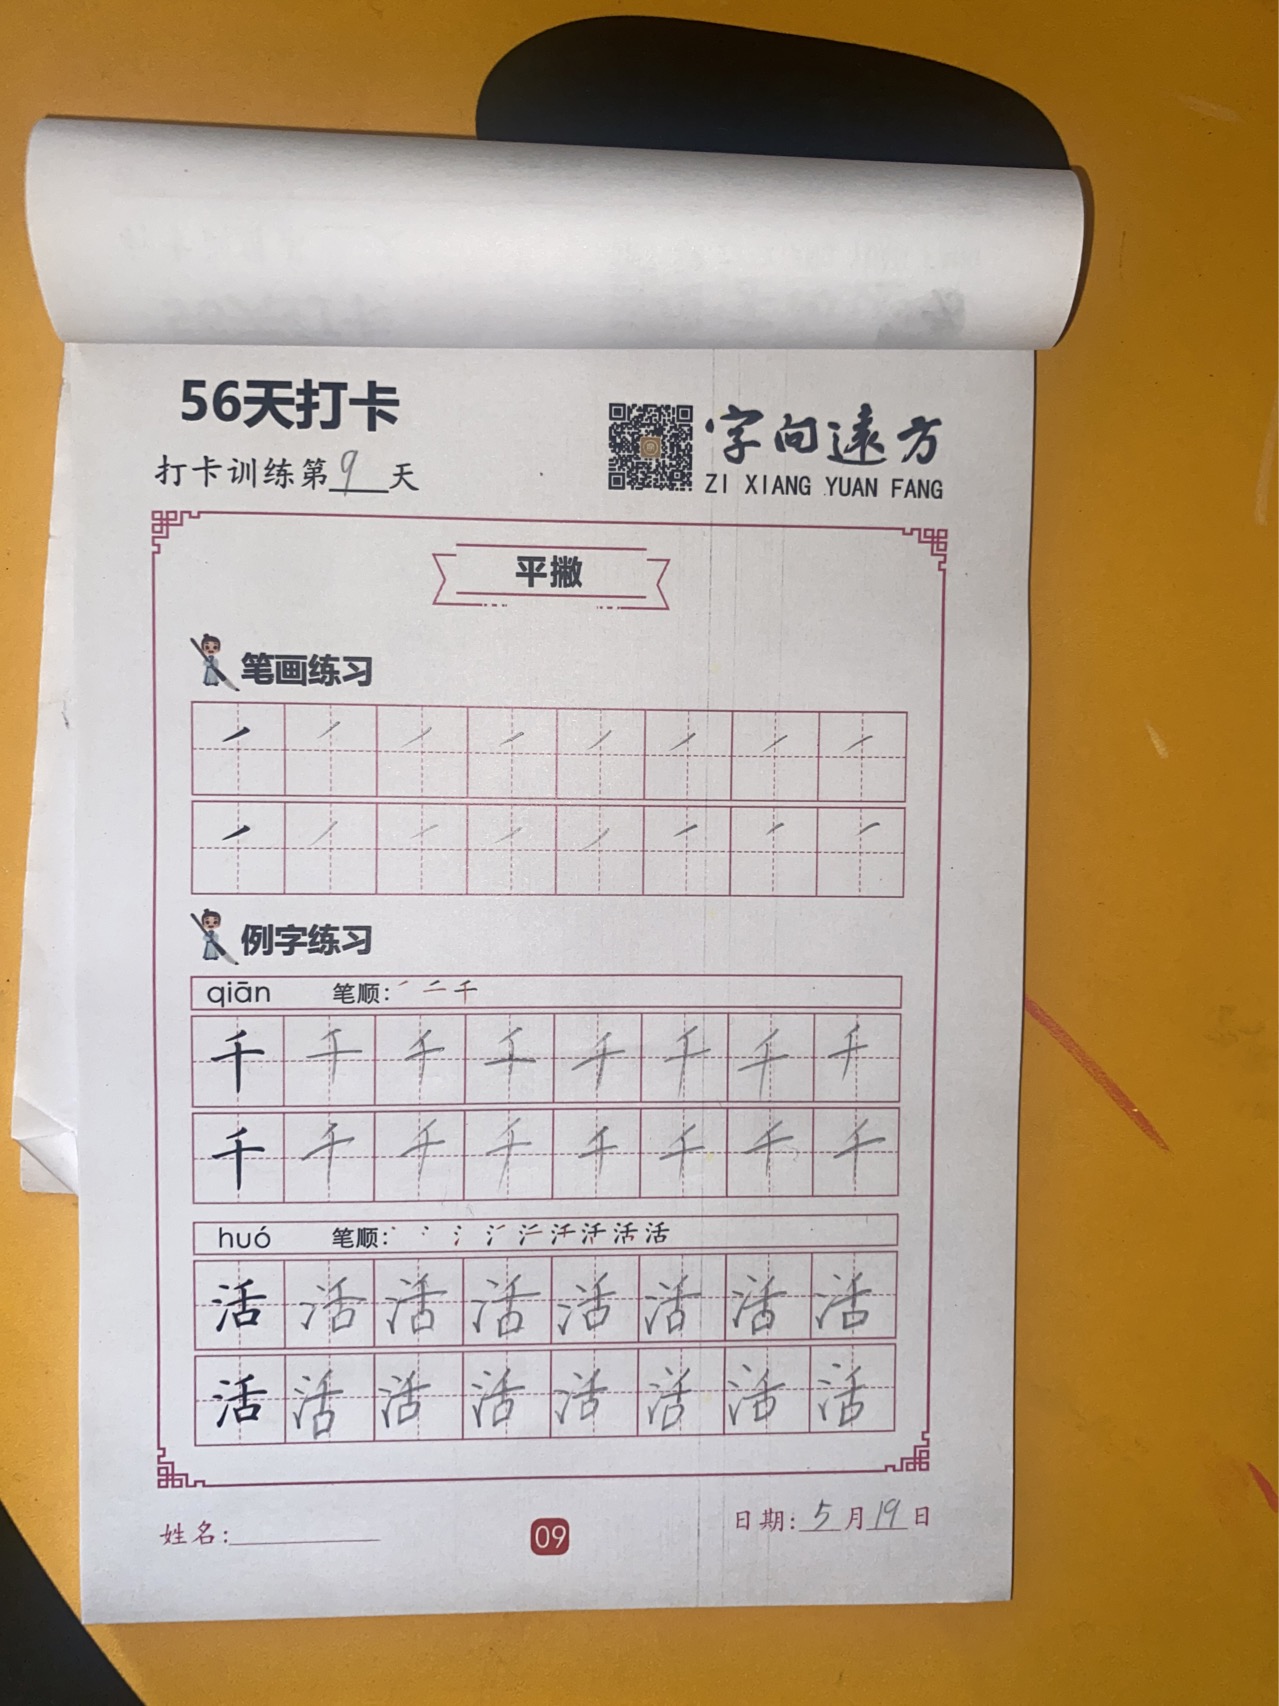 56天打卡
打卡训练第9天
字向遠方
ZI XIANG YUAN FANG
平撇
笔画练习
例字练习
qiān 笔顺:㇒ 二 千
千 千 千 千 千 千 千 千
千 千 千 千 千 千 千 千
huó 笔顺: 活
活 活 活 活 活 活 活 活
活 活 活 活 活 活 活 活
姓名:
09
日期:5月19日